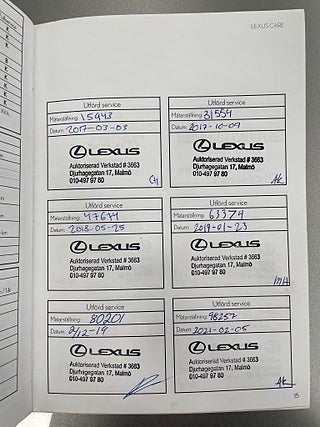 LEXUS CARE
Utförd service
Mätarställning: 15943
Datum: 2017-03-03
LEXUS
Auktoriserad Verkstad # 3663
Djurhagegatan 17, Malmö
010-497 97 80
Utförd service
Mätarställning: 31554
Datum: 2017-10-09
LEXUS
Auktoriserad Verkstad # 3663
Djurhagegatan 17, Malmö
010-497 97 80
Utförd service
Mätarställning: 47674
Datum: 2018-05-25
LEXUS
Auktoriserad Verkstad # 3663
Djurhagegatan 17, Malmö
010-497 97 80
Utförd service
Mätarställning: 63374
Datum: 2019-01-23
LEXUS
Auktoriserad Verkstad # 3663
Djurhagegatan 17, Malmö
010-497 97 80
Utförd service
Mätarställning: 80201
Datum: 2/12-19
LEXUS
Auktoriserad Verkstad # 3663
Djurhagegatan 17, Malmö
010-497 97 80
Utförd service
Mätarställning: 98257
Datum: 2021-02-05
LEXUS
Auktoriserad Verkstad # 3663
Djurhagegatan 17, Malmö
010-497 97 80
15